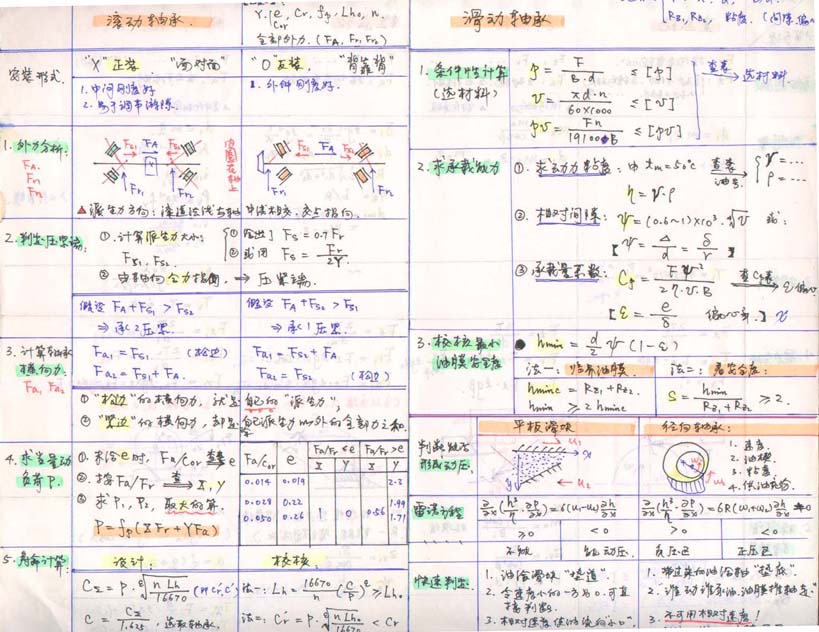 滚动轴承
Y.[e, Cr, fp, Lho, n.
Cor
全部外力. (FA, Fr1, Fr2)
安装形式.
"X" 正装 "面对面"
1. 中间刚度好
2. 易于调节游隙.
"O" 反装 "背靠背"
1. 外伸刚度好.
1. 外力分析:
FA.
Fr1
Fr2
Fs1 FA Fs2
Fr1 Fr2
内圈在轴上
Fs1 FA Fs2
Fr1 Fr2
△ 派生力方向: 滚道法线与轴中线相交, 交点指向.
2. 判定压紧端:
①. 计算派生力大小: Fs1, Fs2.
① 给出] Fs = 0.7Fr
② 或用 Fs = Fr/2Y.
② 由轴向合力指向, ⇒ 压紧端.
假设 FA+Fs1 > Fs2
⇒ 承2压紧.
假设 FA+Fs2 > Fs1
⇒ 承1压紧.
3. 计算轴承轴向力.
Fa1, Fa2
Fa1 = Fs1 (松边)
Fa2 = Fs1 + FA.
Fa1 = Fs2 + FA.
Fa2 = Fs2 (松边)
① "松边"的轴向力, 就是自己的"派生力",
② "紧边"的轴向力, 都是除自己派生力以外的全部力之和
4. 求当量动负荷 P.
① 求合e时. Fa/Cor 查表 e
② 按 Fa/Fr 查表 X, Y
③ 求 P1, P2, 取大的算.
P = fp(XFr + YFa)
Fa/Cor e Fa/Fr ≤ e Fa/Fr > e
X Y X Y
0.014 0.019 2.3
0.028 0.22 1.99
0.050 0.26 1 0 0.56 1.71
5. 寿命计算:
设计:
C = P · (n Lh/16670)
C = /1.625, 选取轴承.
校核.
法一: Lh = 16670/n (C/P)^ε ≥ Lho.
法二: Cr' = P. n Lho/16670 < Cr
滑动轴承
Rz1, Rz2, 粘度.
1. 条件性计算
(选材料)
p = F/B·d ≤ [p]
v = πd·n/60×1000 ≤ [v]
pv = Fn/19100·B ≤ [pv]
查表 → 选材料
2. 求承载能力
①. 求动力粘度: 由 tm = 50℃ 查表 油号 { γ = ...
ρ = ...
η = γ·ρ
②. 相对间隙: ψ = (0.6~1)×10³·√v 或:
[ ψ = Δ/d = δ/r ]
③ 承载量系数: Cp = Fψ²/2η·v·B 查Cp表 → ε偏心
[ ε = e/δ 偏心率. ]
3. 校核最小油膜安全度
hmin = d/2 ψ (1-ε)
法一: 临界油膜.
hminc = Rz1 + Rz2.
hmin ≥ 2 hminc
法二: 安全度:
S = hmin/Rz1+Rz2 ≥ 2.
判断能否形成动压.
平板滑块
u1 x y u2
径向轴承:
1. 速度.
2. 油楔.
3. 粘度.
4. 供油充分.
雷诺方程
∂/∂x(h³/η · ∂p/∂x) = 6(u1-u2)∂h/∂x
≥0 <0
不能 能动压.
∂/∂x(h³/η · ∂p/∂x) = 6R(ω1+ω2)∂h/∂x
>0 <0
负压区 正压区
快速判定.
1. 油沿滑块"楔道".
2. 令速度小的一方为0. 可直接判断.
1. 带过来的油沿轴"楔庭".
2. "谁动谁带油, 油膜推轴走."
3. 不可用相对速度!